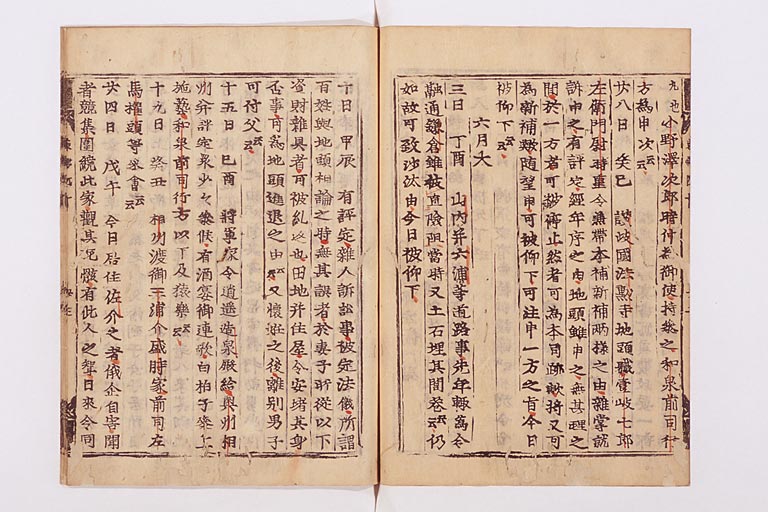 九也 小野澤次郎時仲爲御使持參之和泉前司行
方爲申次云云
廿八日 癸巳 讃岐國法勳寺地頭職壹岐七郎
左衛門尉時重令兼帶本補新補兩樣之由雜掌就
訴申之有評定經年序之由地頭雖申之無其理之
間於一方者可被停止然者可爲本司跡歟將又可
爲新補歟隨望申可被仰下可注申一方之旨今日
被仰下云云
六月大
三日 丁酉 山內并六浦等道路事先年輙爲令
融通鎌倉雖被直險阻當時又土石埋其閭巷云云仍
如故可致沙汰由今日被仰下
十日 甲辰 有評定雜人訴訟事被定法儀所謂
百姓與地頭相論之時無其誤者於妻子所從以下
資財雜具者可被糺返也田地并住屋令安堵其身
否事可爲地頭進退之由云云又懷妊之後離別男子
可付父云云
十五日 己酉 將軍家令逍遙造泉殿給奧州相
州并評定衆少々參候有酒宴御連歌白拍子參上
施藝和泉前司行方以下及猿樂云云
十九日 癸丑 相州渡御三浦介盛時家前司左
馬權頭等參會云云
廿四日 戊午 今日居住佐介之者俄企自害聞
者競集圍繞此家觀其死骸有此人之聟日來令同